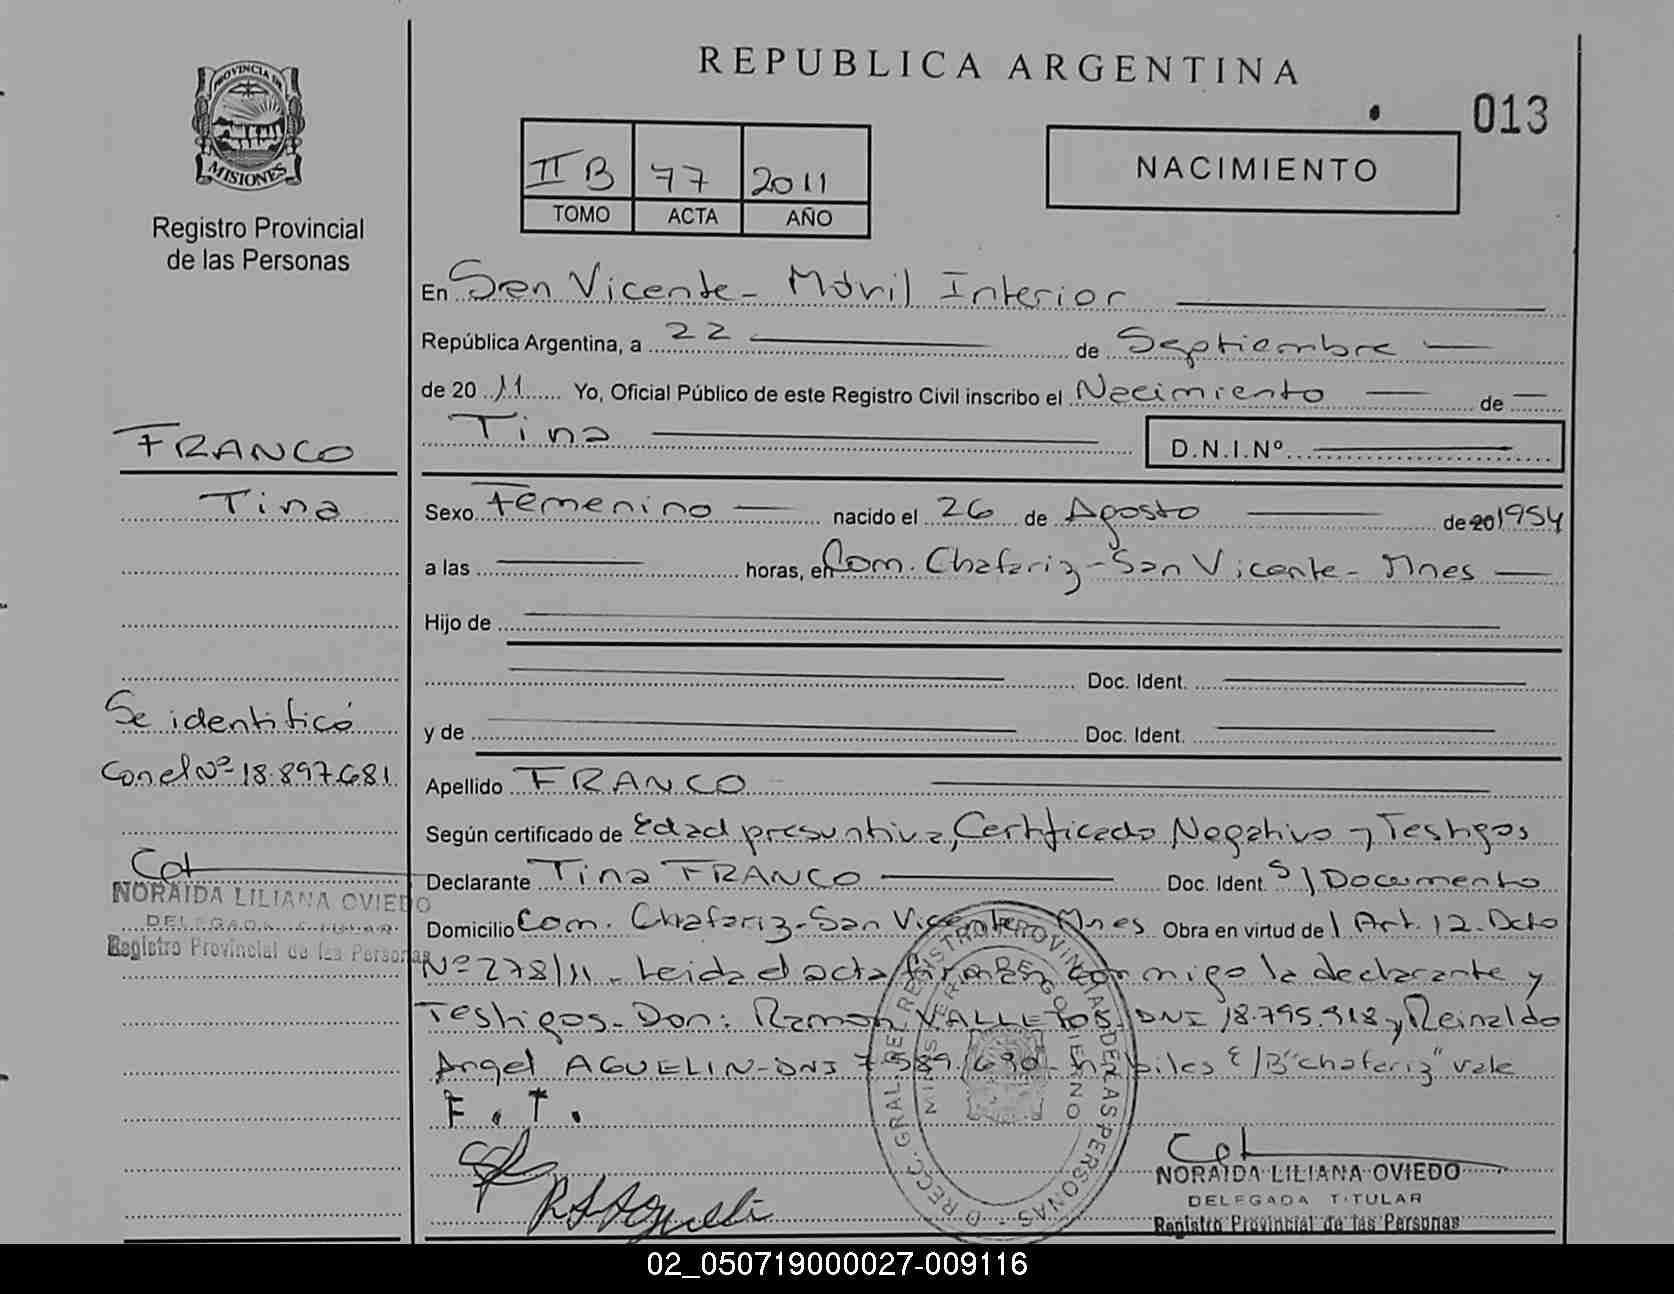 REPUBLICA ARGENTINA
013
PROVINCIA DE
MISIONES
Registro Provincial
de las Personas
II B 77 2011
TOMO ACTA AÑO
NACIMIENTO
En San Vicente - Móvil Interior
República Argentina, a 22 de Septiembre
de 20 11 Yo, Oficial Público de este Registro Civil inscribo el Nacimiento de
Tina D.N.I.Nº
FRANCO
Tina
Sexo Femenino nacido el 26 de Agosto de 20 1954
a las horas, en Com. Chafariz - San Vicente - Mnes
Hijo de
Doc. Ident.
y de Doc. Ident.
Se identificó
con el Nº 18.897.681
Apellido FRANCO
Según certificado de Edad presuntiva, Certificado Negativo y Testigos
Declarante Tina FRANCO Doc. Ident. S/Documento
Domicilio Com. Chafariz - San Vicente Mnes Obra en virtud de l Art. 12. Dcto
Nº 278/11 - Leida el acta firman conmigo la declarante y
Testigos - Don: Ramon DNI 18.795.918 y Reinaldo
Angel AGUELIN - DNI 7.589.690 - hábiles E/B "chafariz" vale
F. T.
NORAIDA LILIANA OVIEDO
DELEGADA TITULAR
Registro Provincial de las Personas
NORAIDA LILIANA OVIEDO
DELEGADA TITULAR
Registro Provincial de las Personas
DIRECC. GRAL DEL REGISTRO PROVINCIAL DE LAS PERSONAS
MINISTERIO DE GOBIERNO
02_050719000027-009116